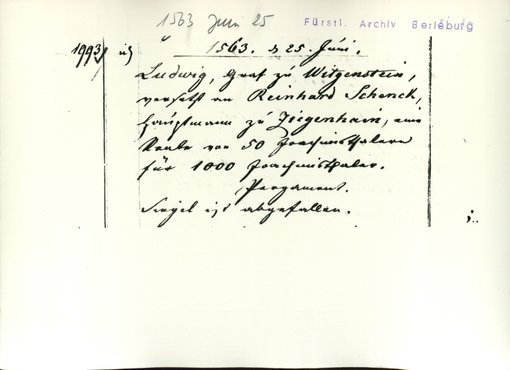 1563 Juni 25
Fürstl. Archiv Berleburg
1993
1563. d 25. Juni.
Ludwig, Graf zu Witgenstein,
versetzt an Reinhard Schenck,
Hauptmann zu Ziegenhain, eine
Rente von 50 Joachimsthalern
für 1000 Joachimsthaler.
Pergament.
Siegel ist abgefallen.